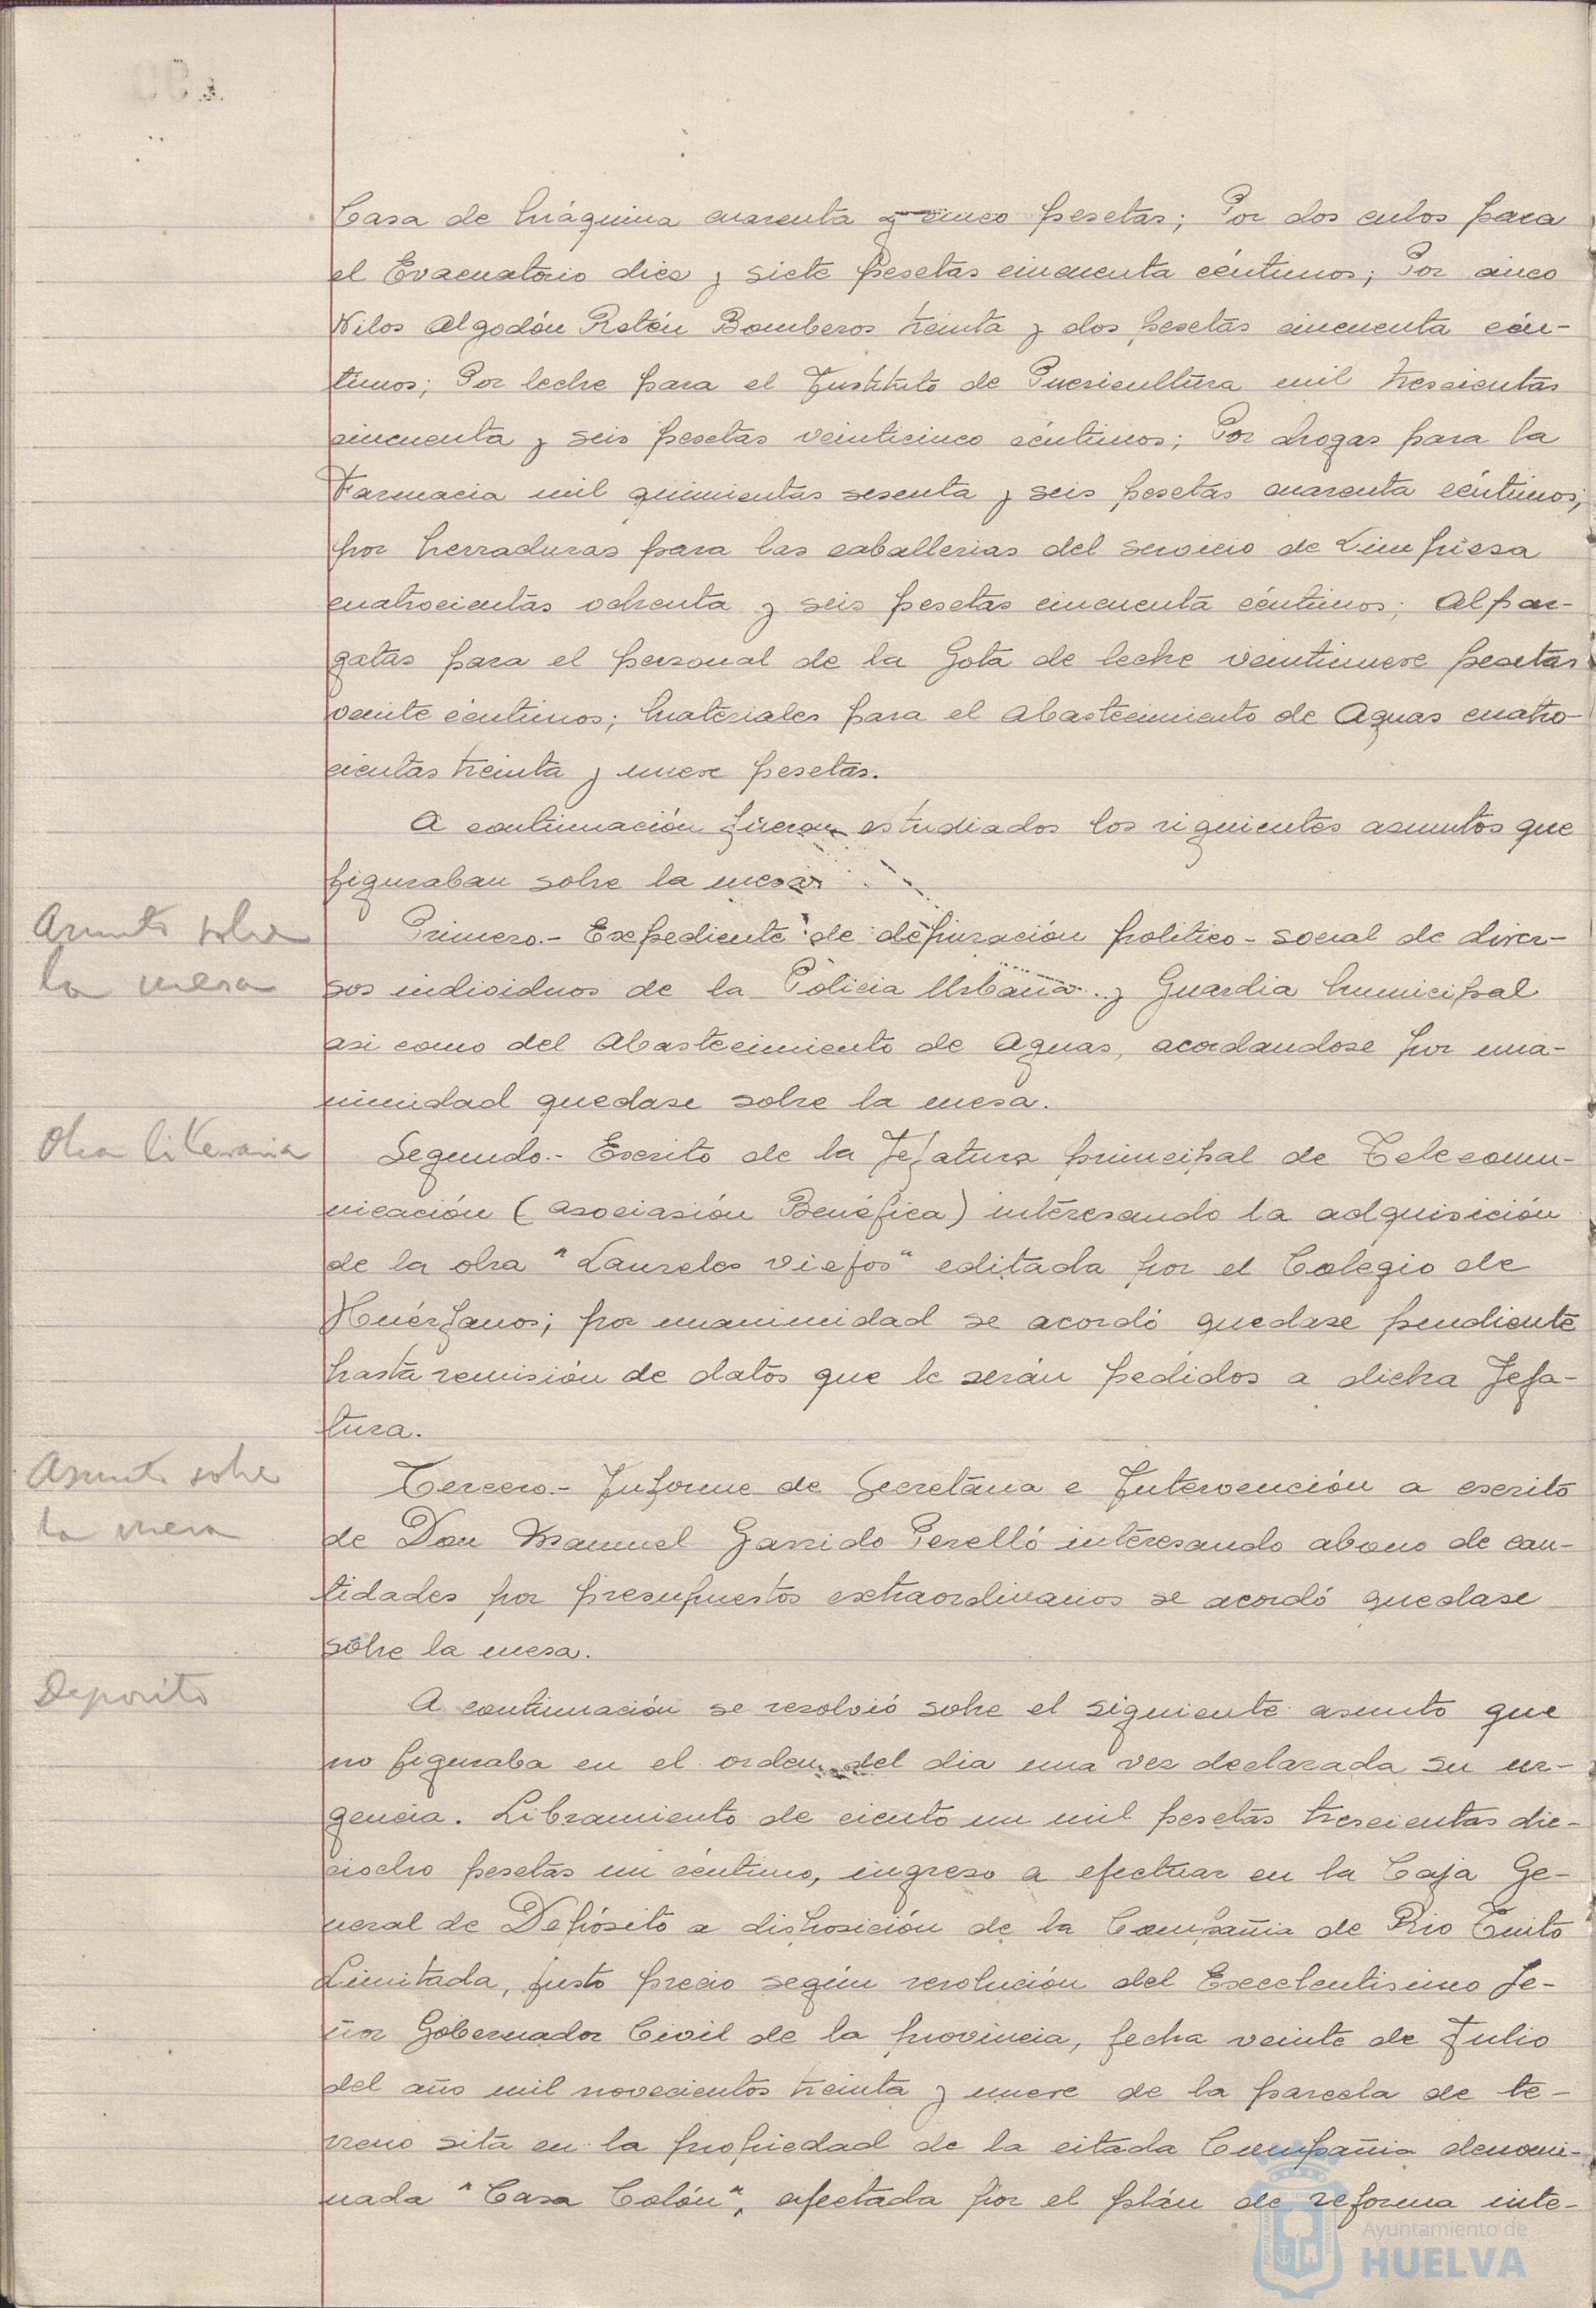 Casa de Máquina cuarenta y cinco pesetas; Por dos cubos para
el Evacuatorio diez y siete pesetas cincuenta céntimos; Por cinco
Kilos Algodón Ratón Bomberos treinta y dos pesetas cincuenta cén-
timos; Por leche para el Instituto de Puericultura mil trescientas
cincuenta y seis pesetas veinticinco céntimos; Por drogas para la
Farmacia mil quinientas sesenta y seis pesetas cuarenta céntimos;
por herraduras para las caballerias del servicio de Limpieza
cuatrocientas ochenta y seis pesetas cincuenta céntimos; Alpar-
gatas para el personal de la Gota de leche veintinueve pesetas
veinte céntimos; Materiales para el Abastecimiento de Aguas cuatro-
cientas treinta y nueve pesetas.
A continuación fueron estudiados los siguientes asuntos que
figuraban sobre la mesa:
Asunto sobre
la mesa
Primero.- Expediente de depuración político-social de diver-
sos individuos de la Policia Urbana y Guardia Municipal
asi como del Abastecimiento de Aguas, acordandose por una-
nimidad quedase sobre la mesa.
Obra literaria
Segundo.- Escrito de la Jefatura principal de Telecomu-
nicación (Asociasión Benéfica) interesando la adquisición
de la obra "Laureles Viejos" editada por el Colegio de
Huérfanos; por unanimidad se acordó quedase pendiente
hasta remisión de datos que le serán pedidos a dicha Jefa-
tura.
Asunto sobre
la mesa
Tercero.- Informe de Secretaria e Intervención a escrito
de Don Manuel Garrido Perelló interesando abono de can-
tidades por presupuestos extraordinarios se acordó quedase
sobre la mesa.
Deposito
A continuación se resolvió sobre el siguiente asunto que
no figuraba en el orden del dia una vez declarada su ur-
gencia. Libramiento de ciento un mil pesetas trescientas die-
ciocho pesetas un céntimo, ingreso a efectuar en la Caja Ge-
neral de Depósito a disposición de la Compañia de Rio Tinto
Limitada, justo precio según resolución del Excelentisimo Se-
ñor Gobernador Civil de la provincia, fecha veinte de Julio
del año mil novecientos treinta y nueve de la parcela de te-
rreno sita en la propiedad de la citada Compañia denomi-
nada "Casa Colón", afectada por el plán de reforma inte-
Ayuntamiento de
HUELVA